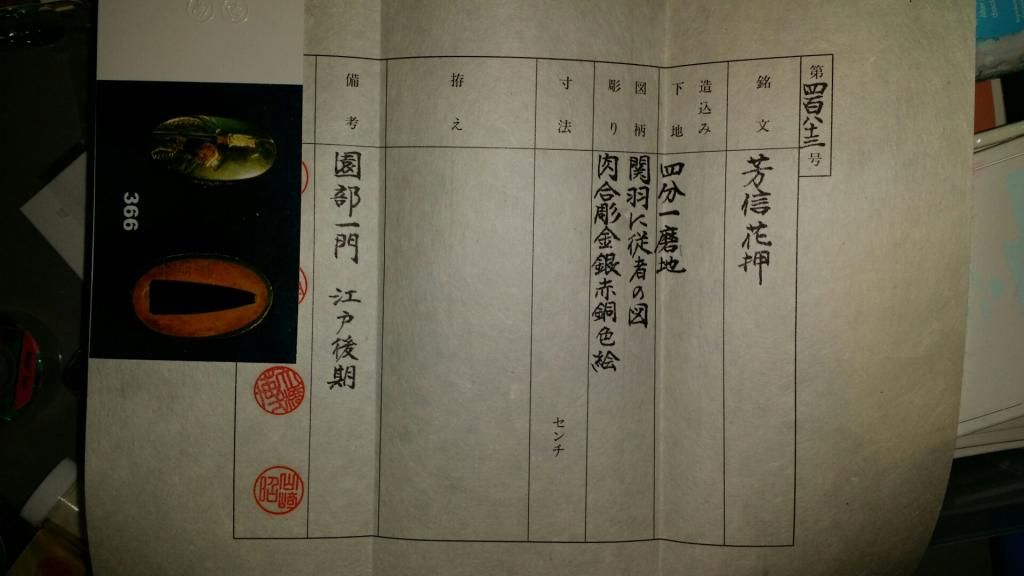 第四百八十三号
銘文
芳信花押
造込み
下地
四分一磨地
図柄
関羽に従者の図
彫り
肉合彫金銀赤銅色絵
寸法
センチ
拵え
備考
園部一門 江戸後期
366